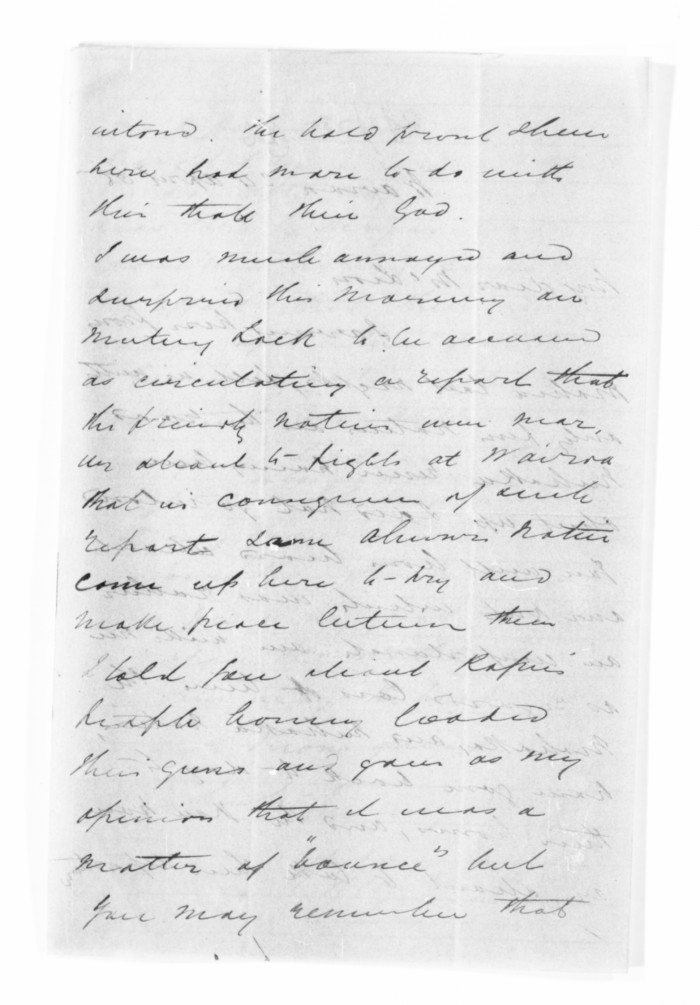 intend. The holdProud them
here had more to do with
this than their God.
I was much annoyed and
surprised this morning on
meeting Lock to be accused
as circulating a report that
the friendly natives were near
ly about to fight at Wairoa
that in consequence of such
report some Ahuriri Natives
come up here to try and
make peace between them
I told you about Kopu's
people having loaded
their guns and gave as my
opinion that it was a
matter of "bounce" but
you may remember that